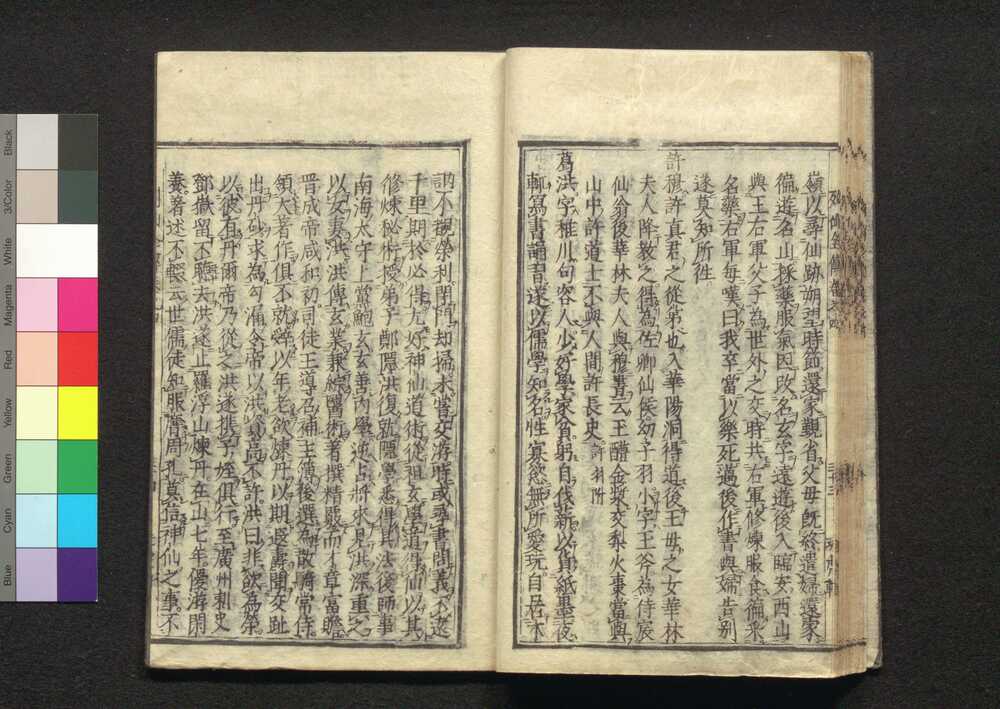 嶺以尋仙跡朔望時節還家覲省父母既終遣婦還家
徧遊名山採藥服氣因改名玄字遠遊後入臨安西山
與王右軍父子為世外之交時共右軍修煉服食徧采
名藥右軍每嘆曰我卒當以樂死邁後作書與婦告别
遂莫知所徃
許穆許真君之從弟也入華陽洞得道後王母之女華林
夫人降教之得為佐卿仙侯幼子羽小字玉斧為侍宸
仙翁後華林夫人與穆書云玉醴金漿交梨火棗當與
山中許道士不與人間許長史 許羽附
葛洪字稚川句容人少好學家貧躬自伐薪以貿紙墨夜
輒寫書誦習遂以儒學知名性寡慾無所愛玩自居木
訥不規榮利閉門却掃未嘗交游時或尋書問義不遠
千里期於必得尤好神仙道術從祖玄學道得仙以其
修煉秘術授弟子鄭隱洪復就隱學悉得其法後師事
南海太守上黨鮑玄玄善内學逆占將來見洪深重之
以女妻洪洪傳玄業兼綜醫術著撰精覈而才章富贍
晉成帝咸和初司徒王導召補主簿後選為散騎常侍
領大著作俱不就辭以年老欲煉丹以期遐壽聞交趾
出丹砂求為勾漏令帝以洪資高不許洪曰非欲為榮
以彼有丹爾帝乃從之洪遂携子姪俱行至廣州刺史
鄧嶽留不聽去洪遂止羅浮山煉丹在山七年優游閒
養著述不輟云世儒徒知服膺周孔莫信神仙之事不
Black
3/Color
White
Magenta
Red
Yellow
Green
Cyan
Blue